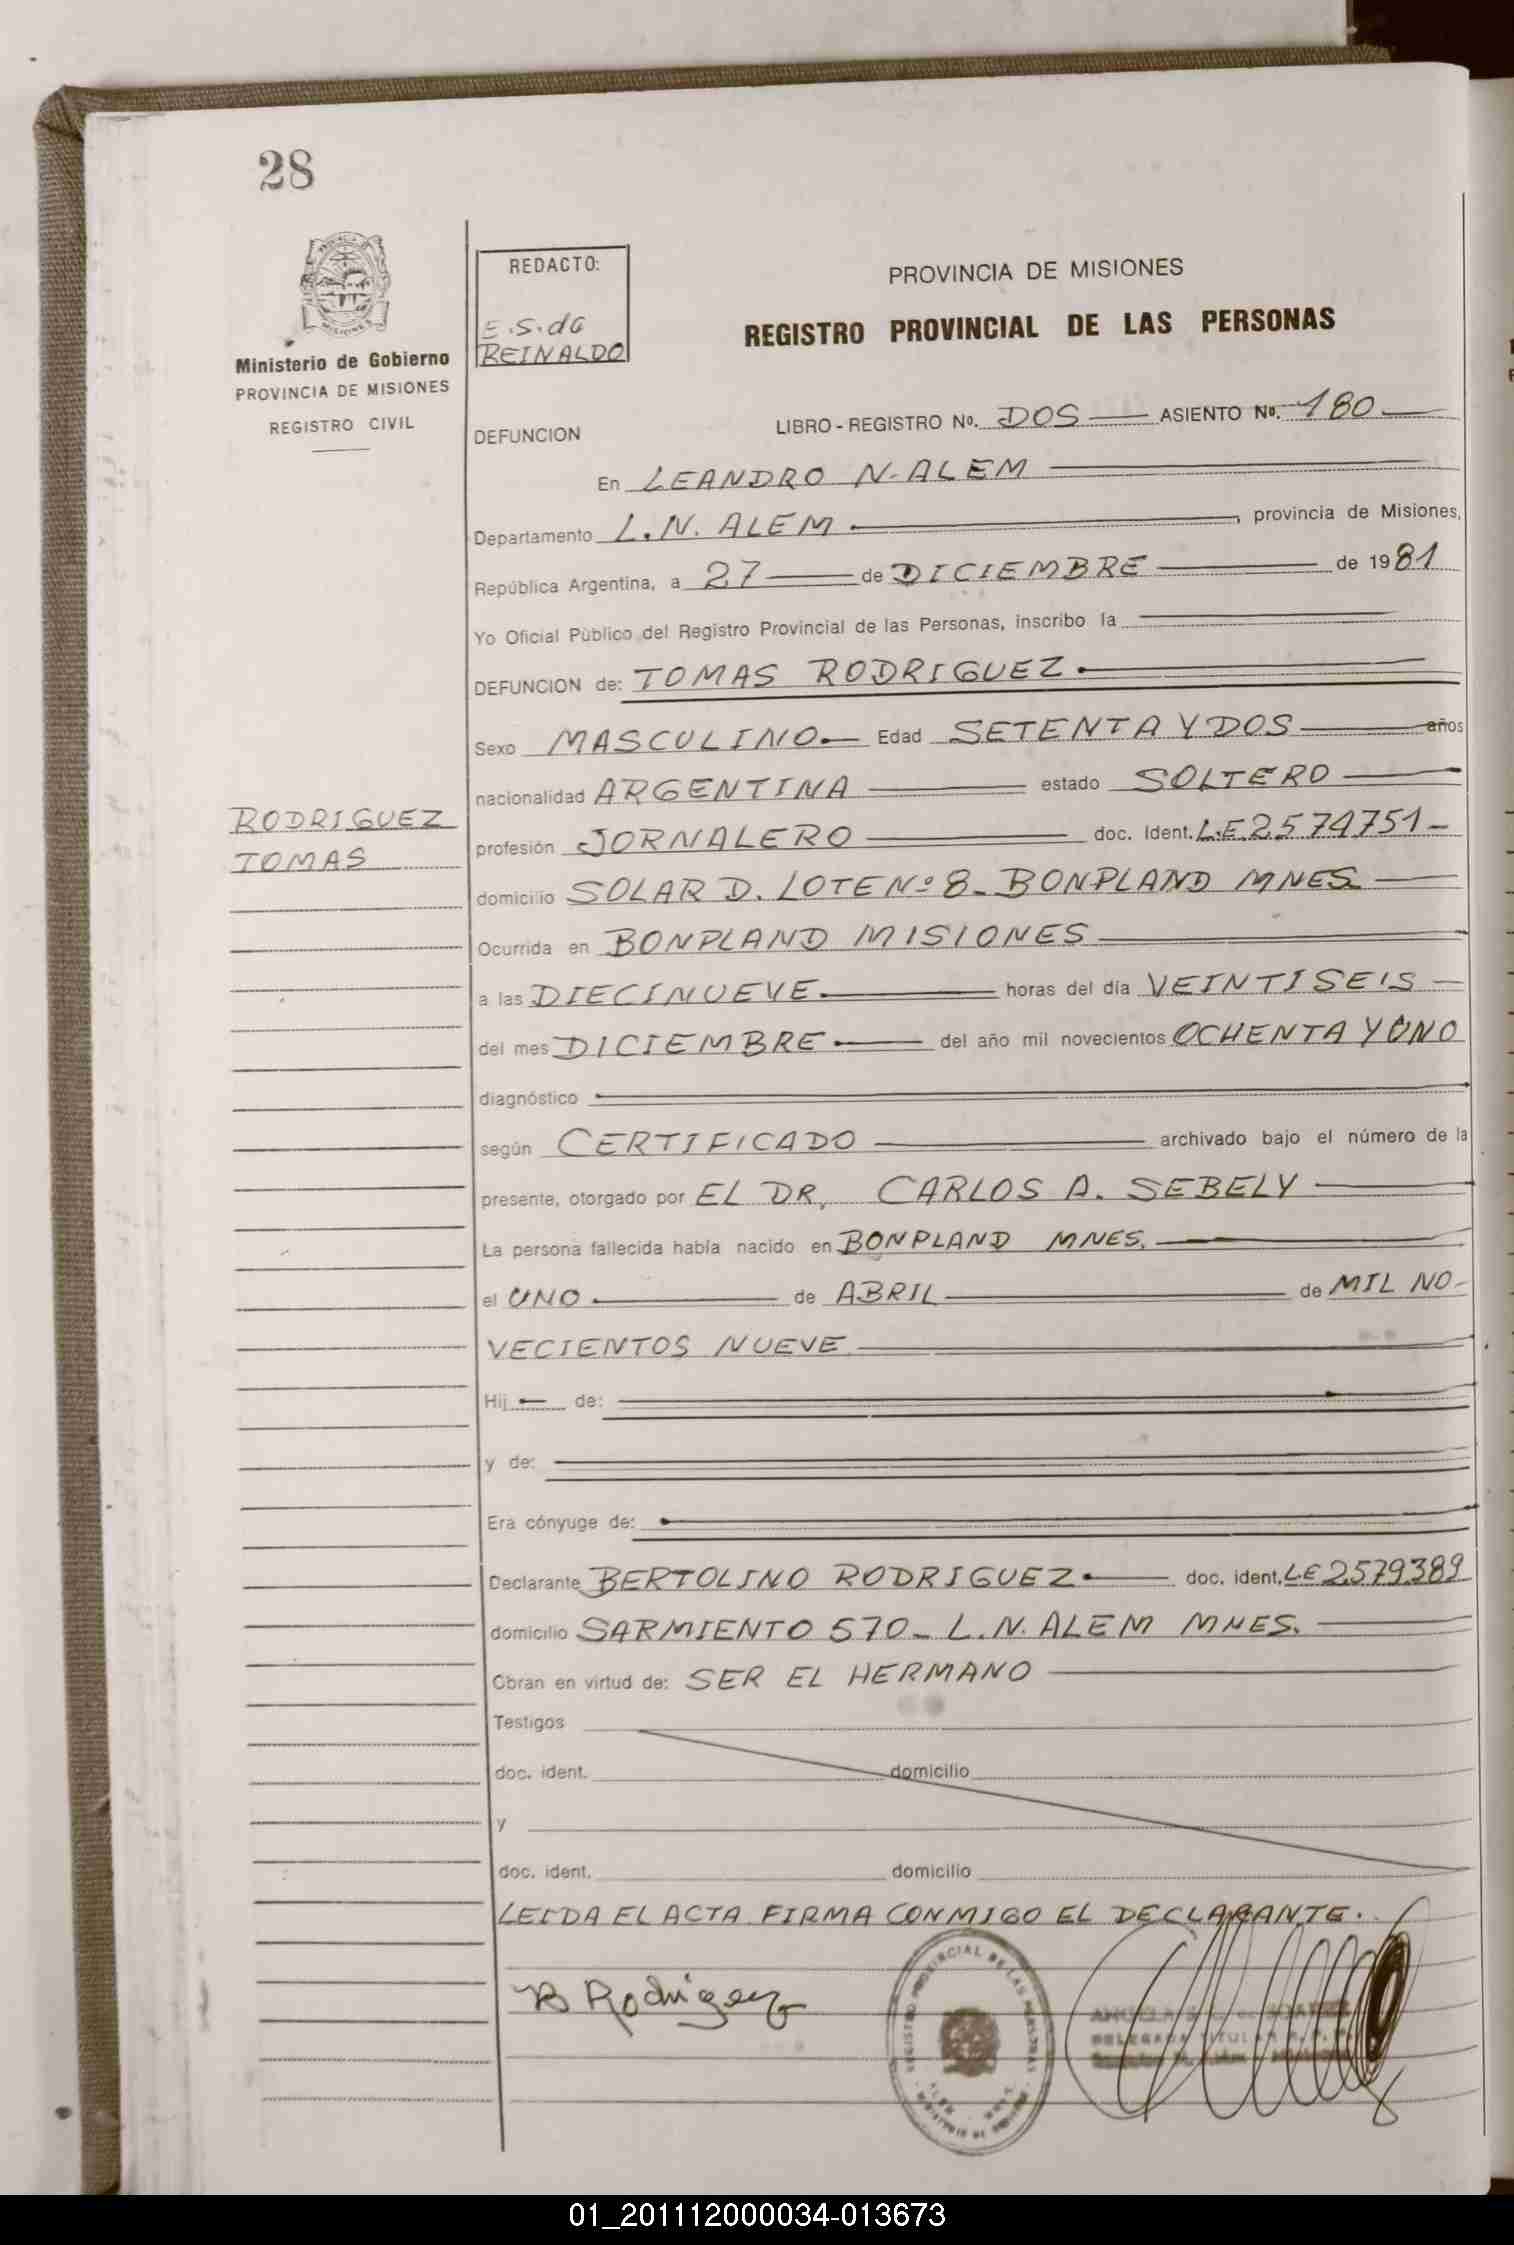 28
REDACTO:
E.S.da
REINALDO
Ministerio de Gobierno
PROVINCIA DE MISIONES
REGISTRO CIVIL
PROVINCIA DE MISIONES
REGISTRO PROVINCIAL DE LAS PERSONAS
DEFUNCION LIBRO - REGISTRO Nº. DOS ASIENTO Nº. 180
En LEANDRO N. ALEM
Departamento L.N. ALEM, provincia de Misiones,
República Argentina, a 27 de DICIEMBRE de 1981
Yo Oficial Público del Registro Provincial de las Personas, inscribo la
DEFUNCION de: TOMAS RODRIGUEZ
Sexo MASCULINO Edad SETENTA Y DOS años
nacionalidad ARGENTINA estado SOLTERO
RODRIGUEZ
TOMAS
profesión JORNALERO doc. Ident. L.E 2574751
domicilio SOLAR D. LOTE Nº 8 - BONPLAND MNES
Ocurrida en BONPLAND MISIONES
a las DIECINUEVE horas del día VEINTISEIS
del mes DICIEMBRE del año mil novecientos OCHENTA Y UNO
diagnóstico
según CERTIFICADO archivado bajo el número de la
presente, otorgado por EL DR, CARLOS A. SEBELY
La persona fallecida había nacido en BONPLAND MNES.
el UNO de ABRIL de MIL NO-
VECIENTOS NUEVE
Hij de:
y de:
Era cónyuge de:
Declarante BERTOLINO RODRIGUEZ doc. ident. LE 2579389
domicilio SARMIENTO 570 - L.N. ALEM MNES.
Obran en virtud de: SER EL HERMANO
Testigos
doc. ident. domicilio
y
doc. ident. domicilio
LEIDA EL ACTA FIRMA CONMIGO EL DECLARANTE.
B Rodriguez
REGISTRO PROVINCIAL DE LAS PERSONAS
DELEGADA TITULAR
01_201112000034-013673